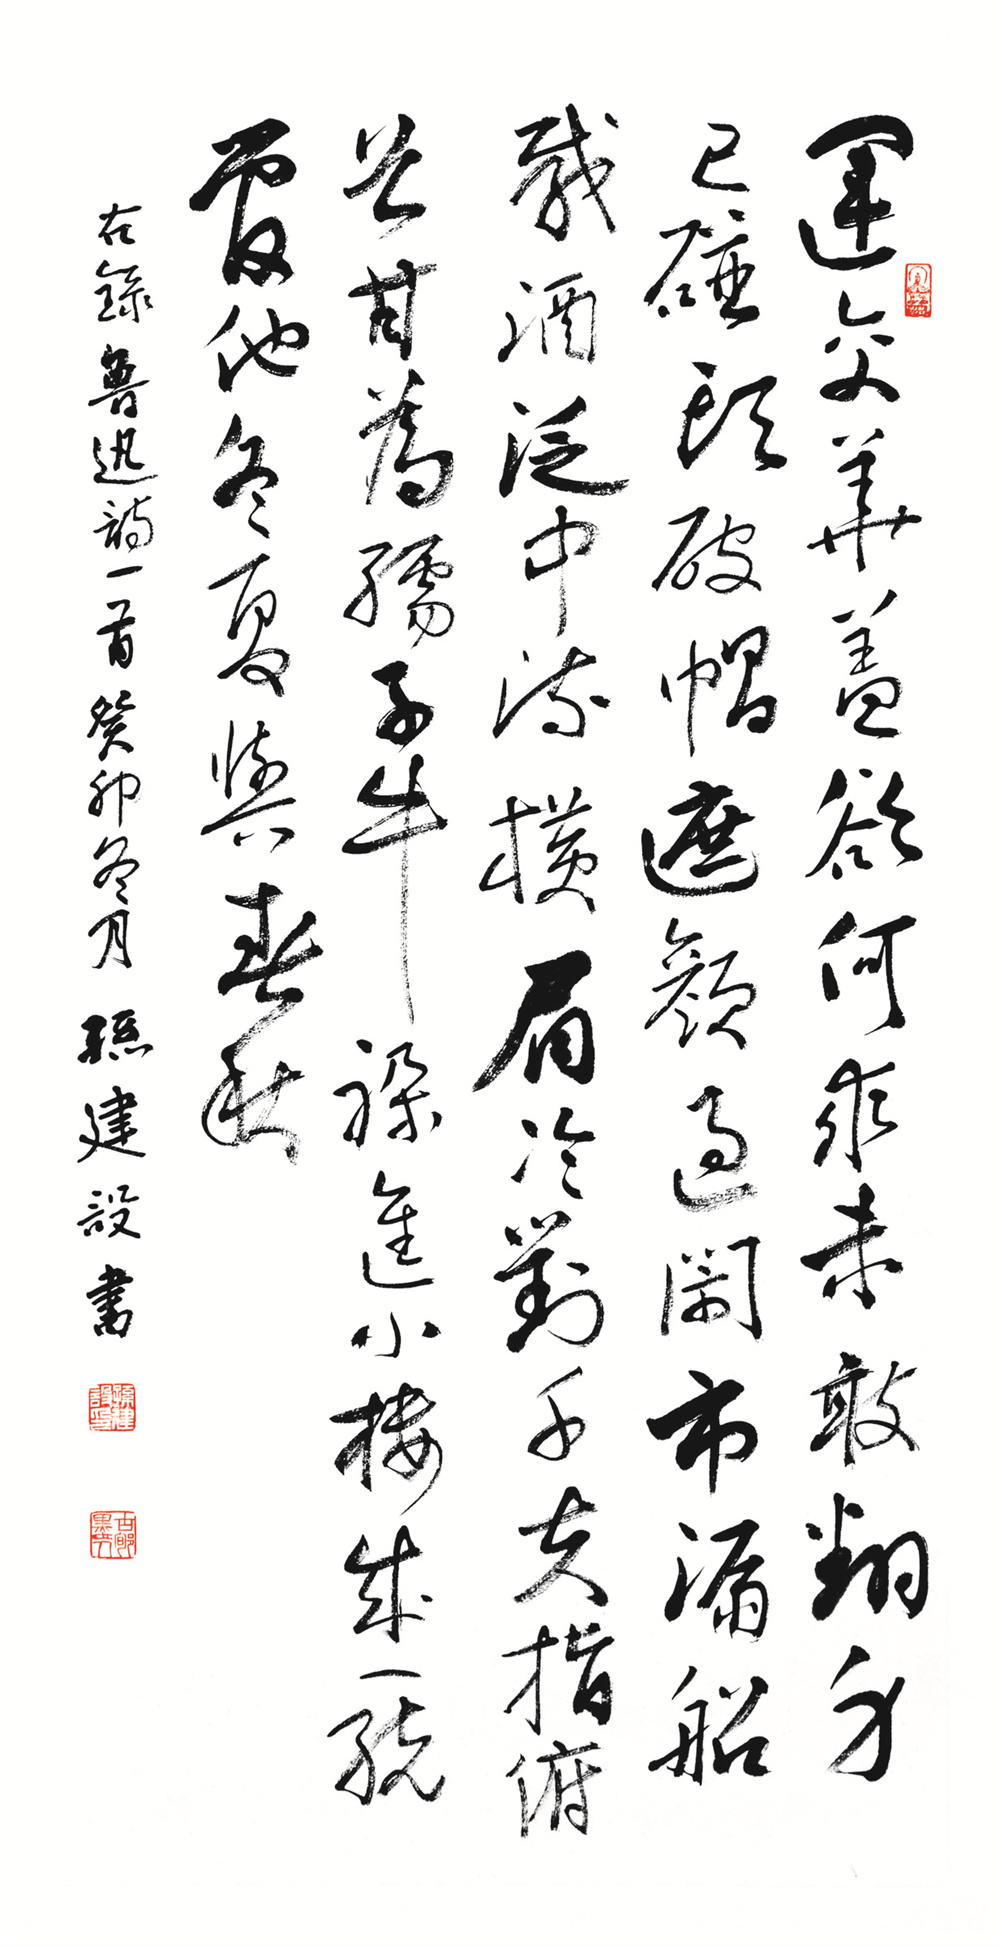 運交華蓋欲何求未敢翻身
已碰頭破帽遮顏過鬧市漏船
載酒泛中流橫眉冷對千夫指俯
首甘為孺子牛躲進小樓成一統
管他冬夏與春秋
右錄魯迅詩一首癸卯冬月孫建設書
孫建設印